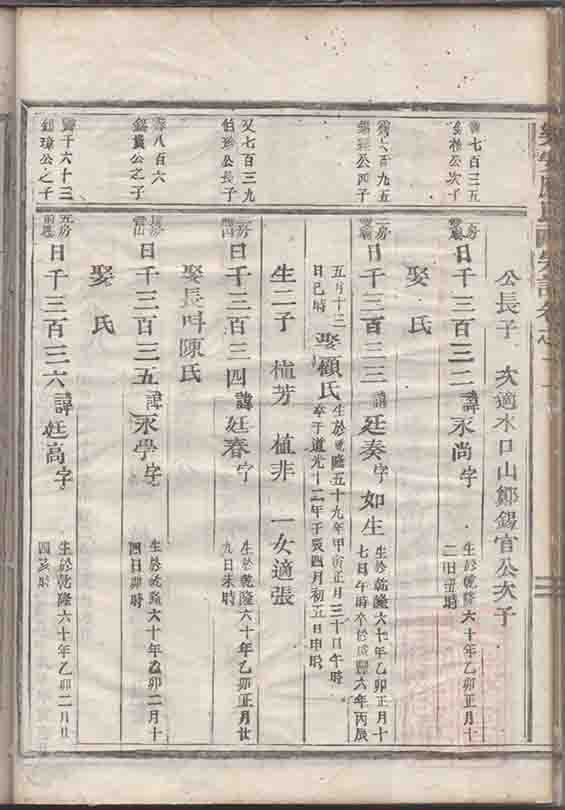 公長子 次適水口山鄒錫官公次子
七百三五
公次子
二房
日千三百三二 諱永尚字
生於乾隆六十年乙卯正月十
二日丑時
娶氏
九五
公四子
日千三百三三 諱廷奏字如生
生於乾隆六十年乙卯正月十
七日午時卒於咸豐六年丙辰
五月十三
日巳時
娶顧氏
生於乾隆五十九年甲寅正月三十日午時
卒于道光十二年壬辰四月初五日申時
生二子 植芳 植非 一女適張
又七百三九
伯珍公長子
二房
日千三百三四 諱廷春字
生於乾隆六十年乙卯正月廿
九日未時
娶長叫陳氏
八百六
公之子
日千三百三五 諱永學字
生於乾隆六十年乙卯二月十
四日卯時
娶氏
千六十三
公之子
五房
日千三百三六 諱廷高字
生於乾隆六十年乙卯二月廿
四亥時